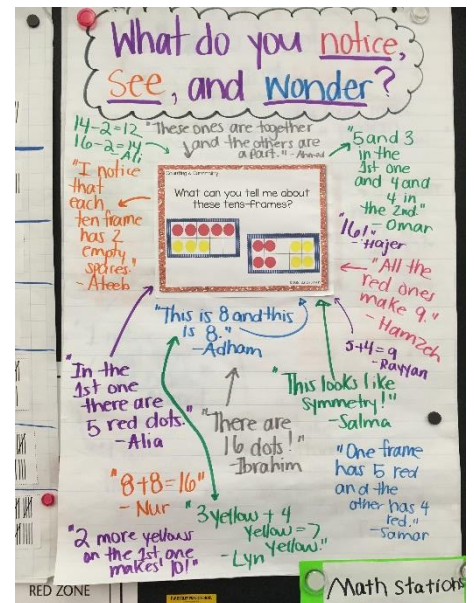 What do you notice,
see, and wonder?
14-2=12
16-2=14
- Ali
"These ones are together
and the others are
apart." - Ahmad
"5 and 3
in the
1st one
and 4 and
4 in
the 2nd."
- Omar
"I notice
that
each
ten frame
has 2
empty
spares."
- Ateeb
Counting & Cardinality
What can you tell me about
these tens-frames?
"16!"
- Hajer
"All the
red ones
make 9."
- Hamzeh
"This is 8 and this
is 8."
- Adham
5+4=9
- Rayyan
"In the
1st one
there are
5 red dots."
- Alia
"This looks like
symmetry!"
- Salma
"There are
16 dots!"
- Ibrahim
"One frame
has 5 red
and the
other has 4
red."
- Samar
"8+8=16"
- Nur
"3 yellow + 4
yellow = 7
yellow."
- Lyn
"2 more yellows
on the 1st one
makes 10!"
RED ZONE
Math Stations